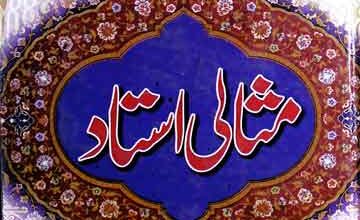 مثالی استاد